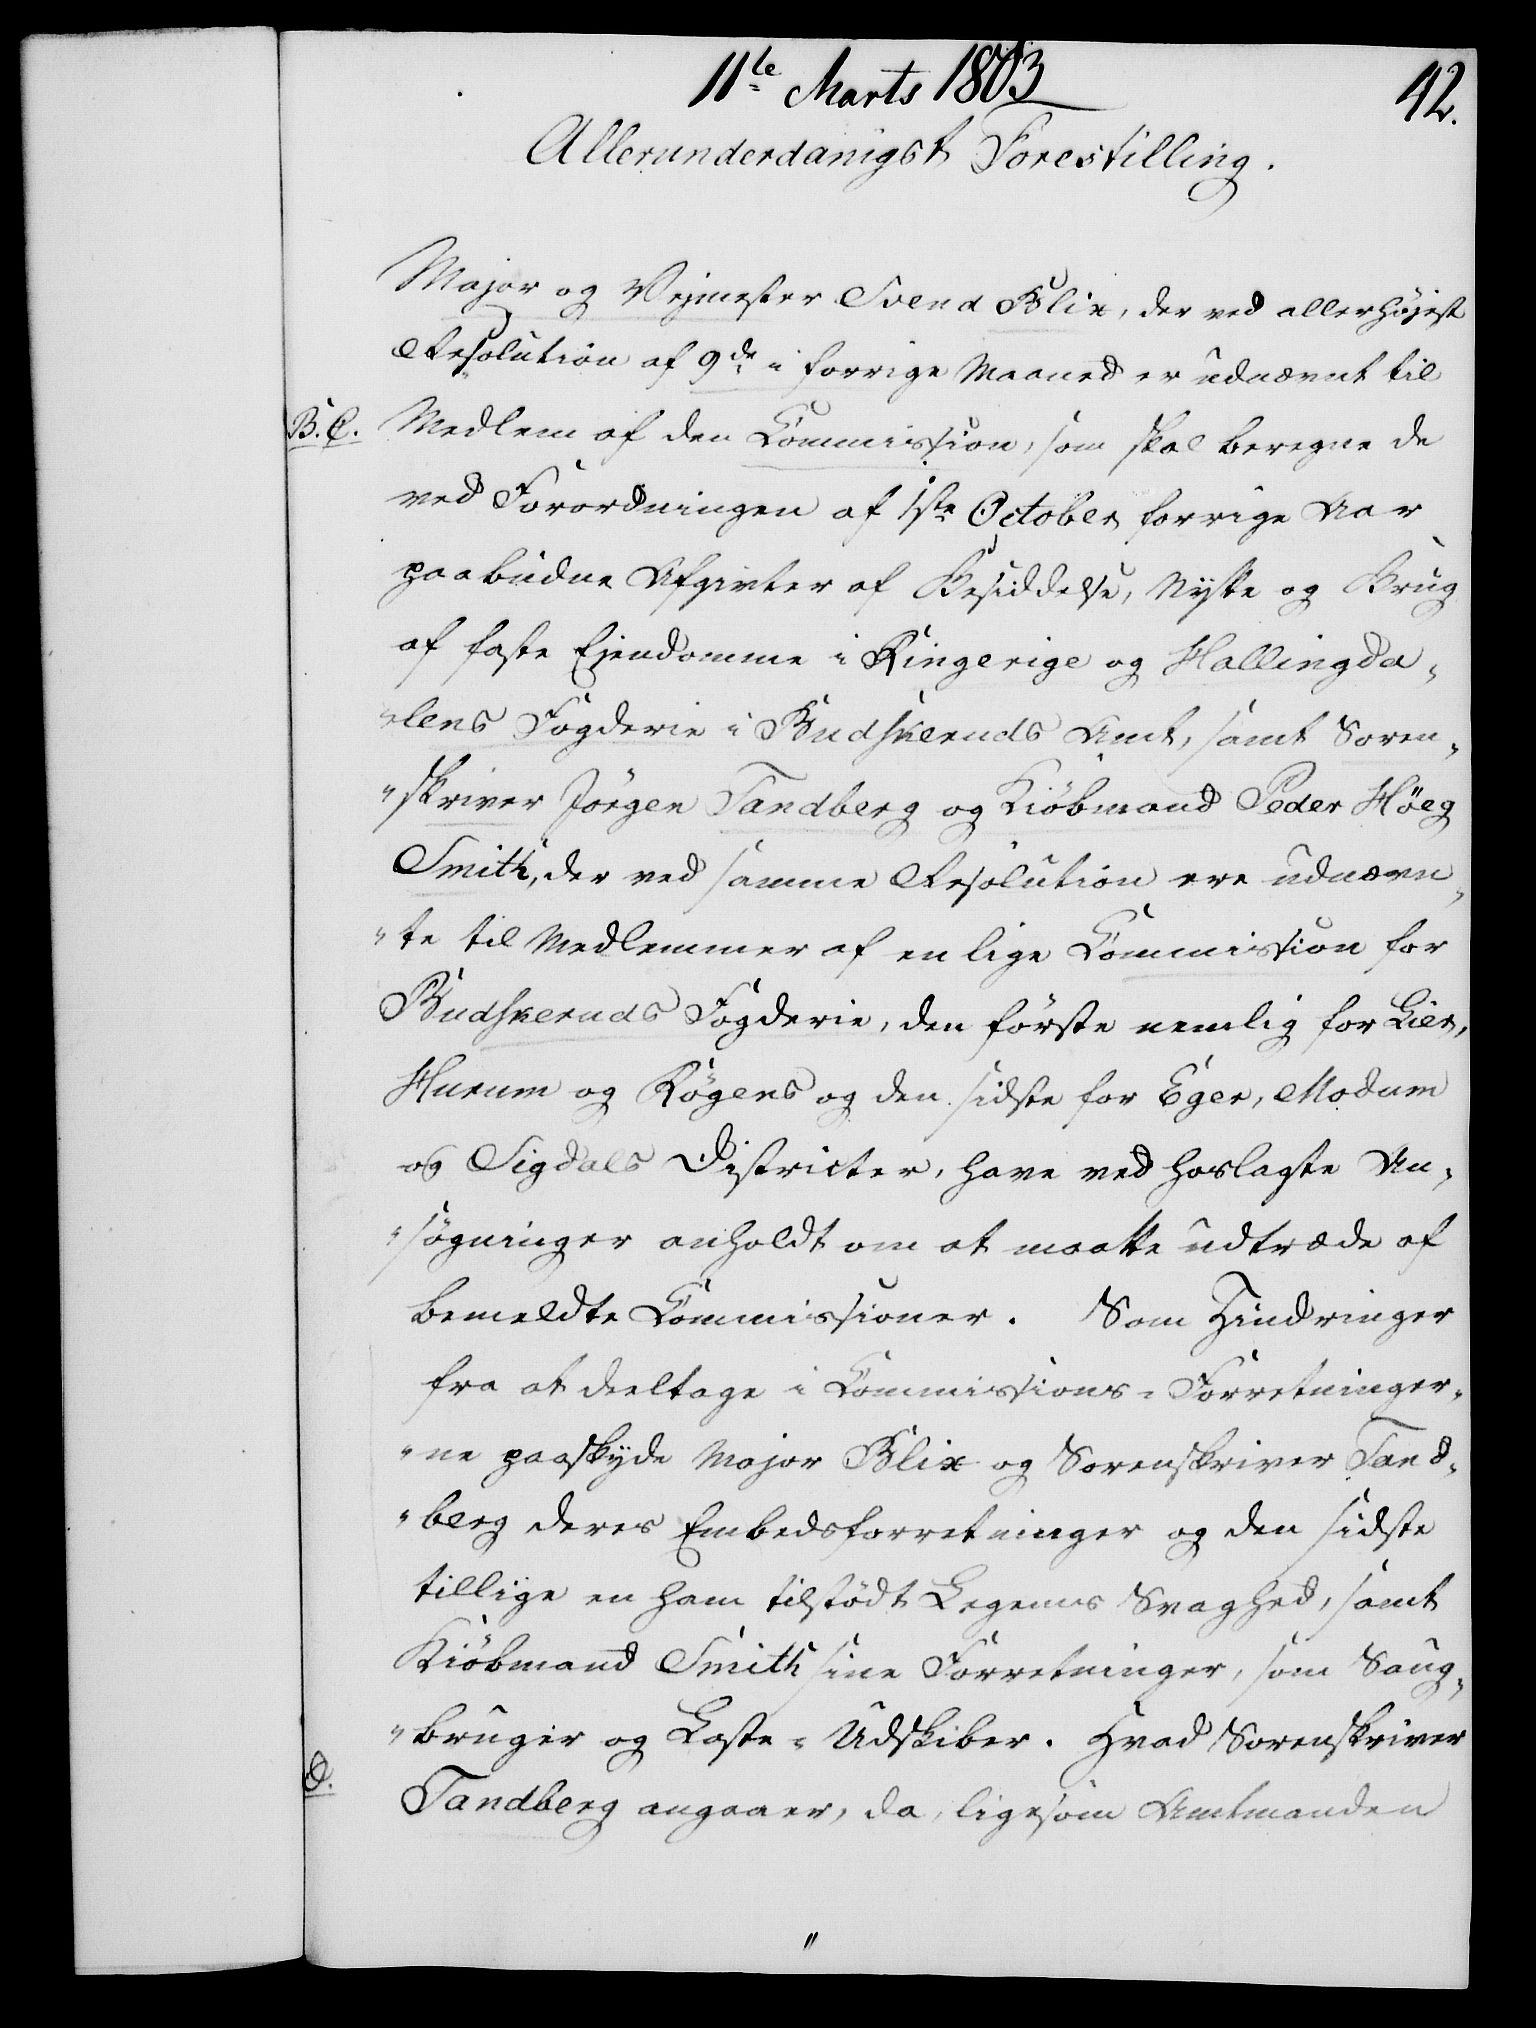 11te Marts 1803
42.
Allerunderdanigst Forestilling.
Major og Vejmester Svend Blix, der ved allerhöjest
Resolution af 9de i forrige Maaned er udnævnt til
B. C. Medlem af den Commission, som skal beregne de
ved Forordningen af 1ste October forrige Aar
paabudne Afgivter af Besiddelse, Nytte og Brug
af faste Ejendomme i Ringerige og Hallingda,
"lens Fogderie i Budskeruds Amt, samt Soren,
"skriver Jörgen Tandberg og Kiöbmand Peder Höeg
Smith, der ved samme Resolution ere udnævn,
"te til Medlemmer af en lige Commission for
Budskeruds Fogderie, den förste nemlig for Lier,
Hurum og Rögens og den sidste for Eger, Modum
og Sigdals Districter, have ved hoslagte An,
"sögninger anholdt om at maatte udtræde af
bemeldte Commissioner. Som Hindringer
fra at deeltage i Commissions-Forretninger,
"ne paaskyde Major Blix og Sorenskriver Tand,
"berg deres Embedsforretninger og den sidste
tillige en ham tilstödt Legems Svaghed, samt
Kiöbmand Smith sine Forretninger, som Saug,
"bruger og Laste-Udskiber. Hvad Sorenskriver
D. Tandberg angaaer, da, ligesom Amtmanden
"